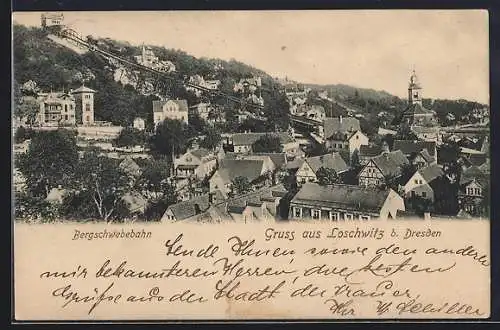 Bergschwebebahn
Gruss aus Loschwitz b. Dresden
Sende Ihnen sowie den andern
mir bekannteren Herren, die besten
Grüsse aus der Stadt der Trauer
Ihr